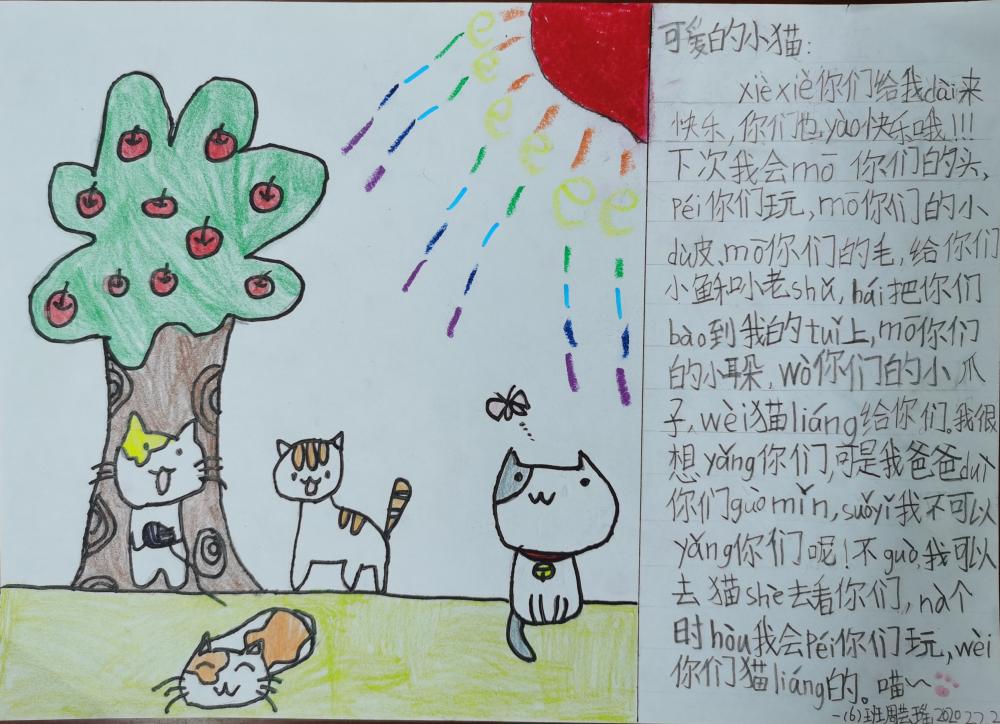 可爱的小猫:
xièxiè你们给我dài来
快乐,你们也yào快乐哦!!!
下次我会mō你们的头,
Péi你们玩,mō你们的小
dù皮、mō你们的毛,给你们
小鱼和小老shǔ,hái把你们
bào到我的tuǐ上,mō你们
的小耳朵,wò你们的小爪
子,wèi猫liáng给你们。我很
想yǎng你们,可是我爸爸duì
你们guòmǐn,suǒyǐ我不可以
yǎng你们呢!不guò,我可以
去猫shè去看你们,nà个
时hòu我会Péi你们玩,wèi
你们猫liáng的。喵~
一(6)班周芸瑶2020.2.2